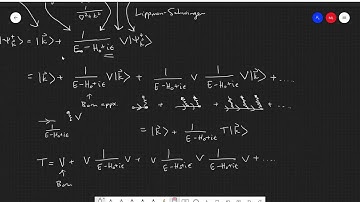 1/(∇²+k²) Lippmann-Schwinger
|ψ_k^±⟩ = |k⃗⟩ + 1/(E-H₀±iϵ) V|ψ_k^±⟩
= |k⃗⟩ + 1/(E-H₀+iϵ) V|k⃗⟩ + 1/(E-H₀+iϵ) V 1/(E-H₀+iϵ) V|k⃗⟩ + ....
↑ Born appx.
1/(E-H₀+iϵ) V
= |k⃗⟩ + 1/(E-H₀+iϵ) T|k⃗⟩
T = V + V 1/(E-H₀+iϵ) V + V 1/(E-H₀+iϵ) V 1/(E-H₀+iϵ) V + ....
↑ Born